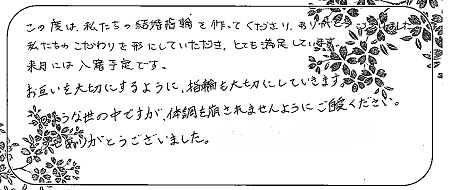 この度は、私たちの結婚指輪を作ってくださり、ありがとうございました
私たちのこだわりを形にしていただき、とても満足しています
来月には入籍予定です。
お互いを大切にするように、指輪も大切にしていきます
うな世の中ですが、体調を崩されませんようにご自愛ください。
ありがとうございました。